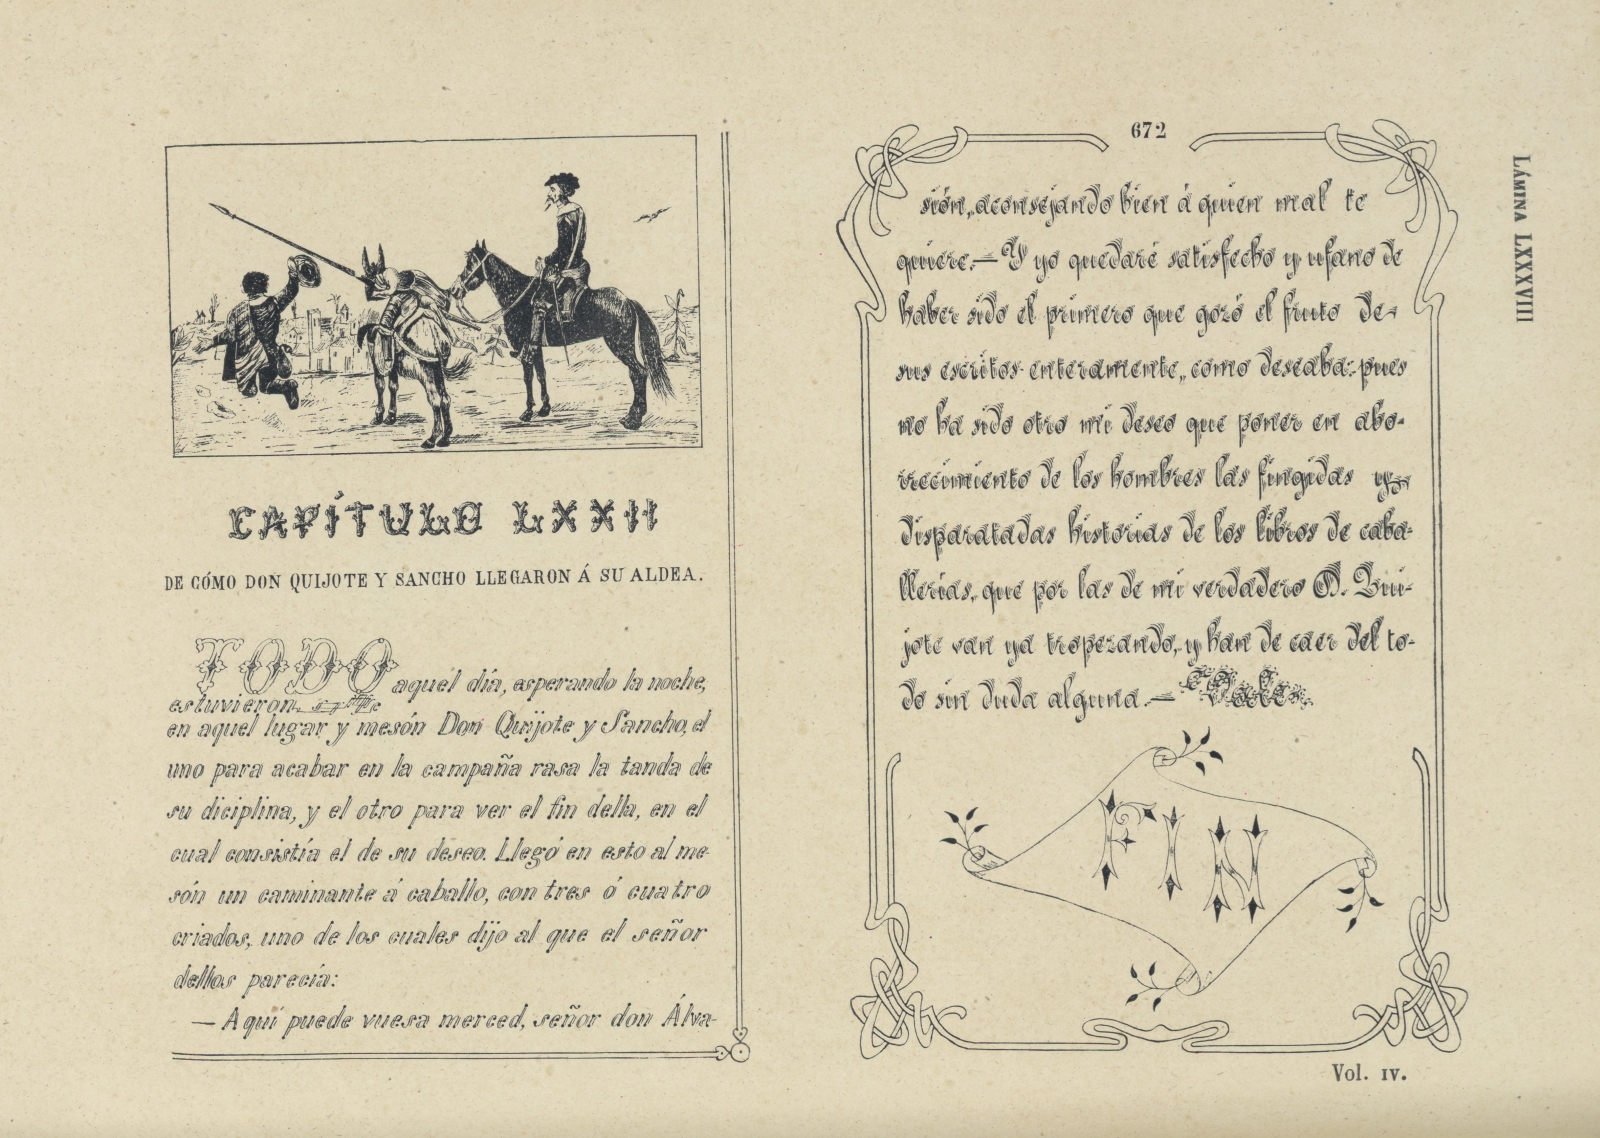 CAPÍTULO LXXII
DE CÓMO DON QUIJOTE Y SANCHO LLEGARON Á SU ALDEA.
TODO aquel día, esperando la noche,
estuvieron
en aquel lugar y mesón Don Quijote y Sancho, el
uno para acabar en la campaña rasa la tanda de
su diciplina, y el otro para ver el fin della, en el
cual consistía el de su deseo. Llegó en esto al me-
són un caminante á caballo, con tres ó cuatro
criados, uno de los cuales dijo al que el señor
dellos parecía:
— Aquí puede vuesa merced, señor don Álva-
672
sión, aconsejando bien á quien mal te
quiere.— Y yo quedaré satisfecho y ufano de
haber sido el primero que gozó el fruto de
sus escritos enteramente, como deseaba: pues
no ha sido otro mi deseo que poner en abo-
rrecimiento de los hombres las fingidas y
disparatadas historias de los libros de caba-
llerías, que por las de mi verdadero D. Qui-
jote van ya tropezando, y han de caer del to-
do sin duda alguna.— Vale.
FIN
Vol. IV.
LÁMINA LXXXVIII